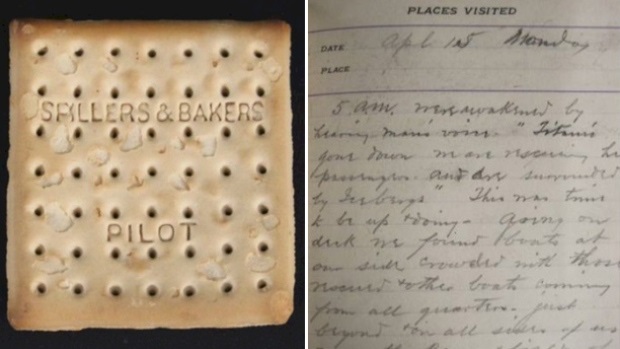 SPILLERS & BAKERS
PILOT
PLACES VISITED
DATE Apl 15 Monday
PLACE
5 A.M. were awakened by
hearing man's voice. "Titanic
gone down we are rescuing her
passengers and are surrounded
by Icebergs" This was time
to be up & doing. Going on
deck we found boats at
one side crowded with those
rescued & other boats coming
from all quarters. just
beyond & on all sides of us